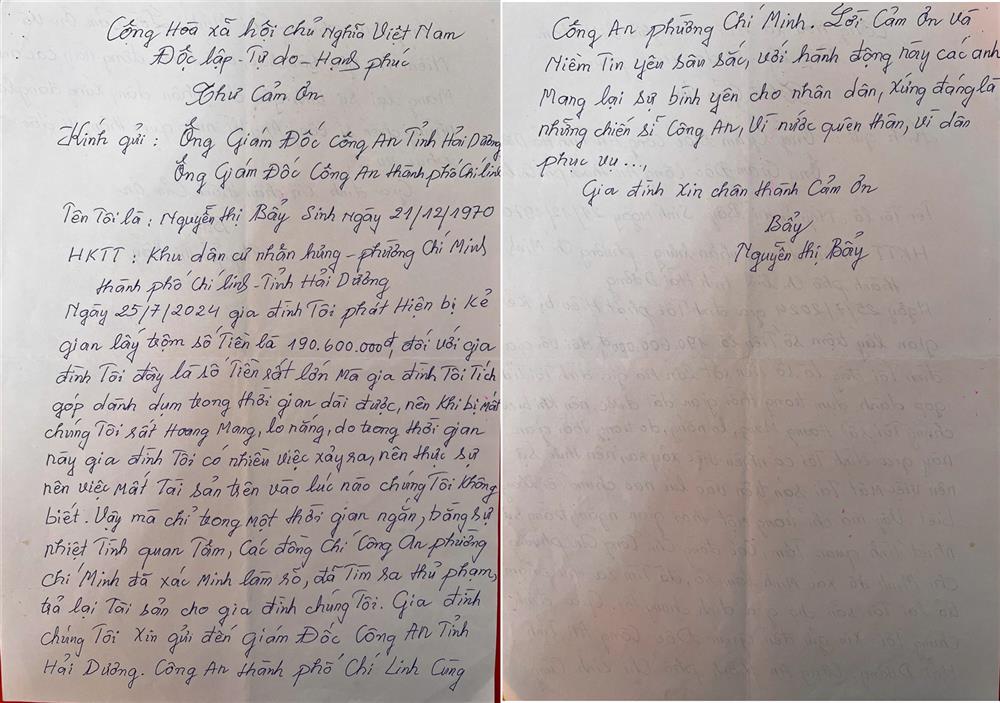 Cộng Hòa xã hội chủ nghĩa Việt Nam
Độc lập - Tự do - Hạnh phúc
Thư Cảm Ơn
Kính gửi : Ông Giám Đốc Công An Tỉnh Hải Dương
Ông Giám Đốc Công An thành phố Chí Linh
Tên Tôi là : Nguyễn Thị Bẩy Sinh Ngày 21/12/1970
HKTT : Khu dân cư nhân hưng - phường Chí Minh
thành phố Chí Linh - Tỉnh Hải Dương
Ngày 25/7/2024 gia đình Tôi phát Hiện bị Kẻ
gian lấy trộm số Tiền là 190.600.000đ, đối với gia
đình Tôi đây là số Tiền rất lớn Mà gia đình Tôi Tích
góp dành dụm trong thời gian dài được, nên khi bị Mất
chúng Tôi rất Hoang Mang, lo nắng, do trong thời gian
này gia đình Tôi có nhiều việc xảy ra, nên thực sự
nên việc Mất Tài sản trên vào lúc nào chúng Tôi không
biết. Vậy mà chỉ trong một thời gian ngắn, bằng sự
nhiệt Tình quan Tâm, Các đồng Chí Công An phường
chí Minh đã xác Minh làm rõ, đã Tìm ra thủ phạm,
trả lại Tài sản cho gia đình chúng Tôi. Gia đình
chúng Tôi Xin gửi đến giám Đốc Công An Tỉnh
Hải Dương. Công An thành phố Chí Linh Cùng
Công An phường Chí Minh. Lời Cảm Ơn và
Niềm Tin yêu sâu sắc, với hành động này các anh
Mang lại sự bình yên cho nhân dân, Xứng đáng là
những chiến sĩ Công An, Vì nước quên thân, vì dân
phục vụ...,
Gia đình Xin chân thành Cảm Ơn
Bẩy
Nguyễn Thị Bẩy